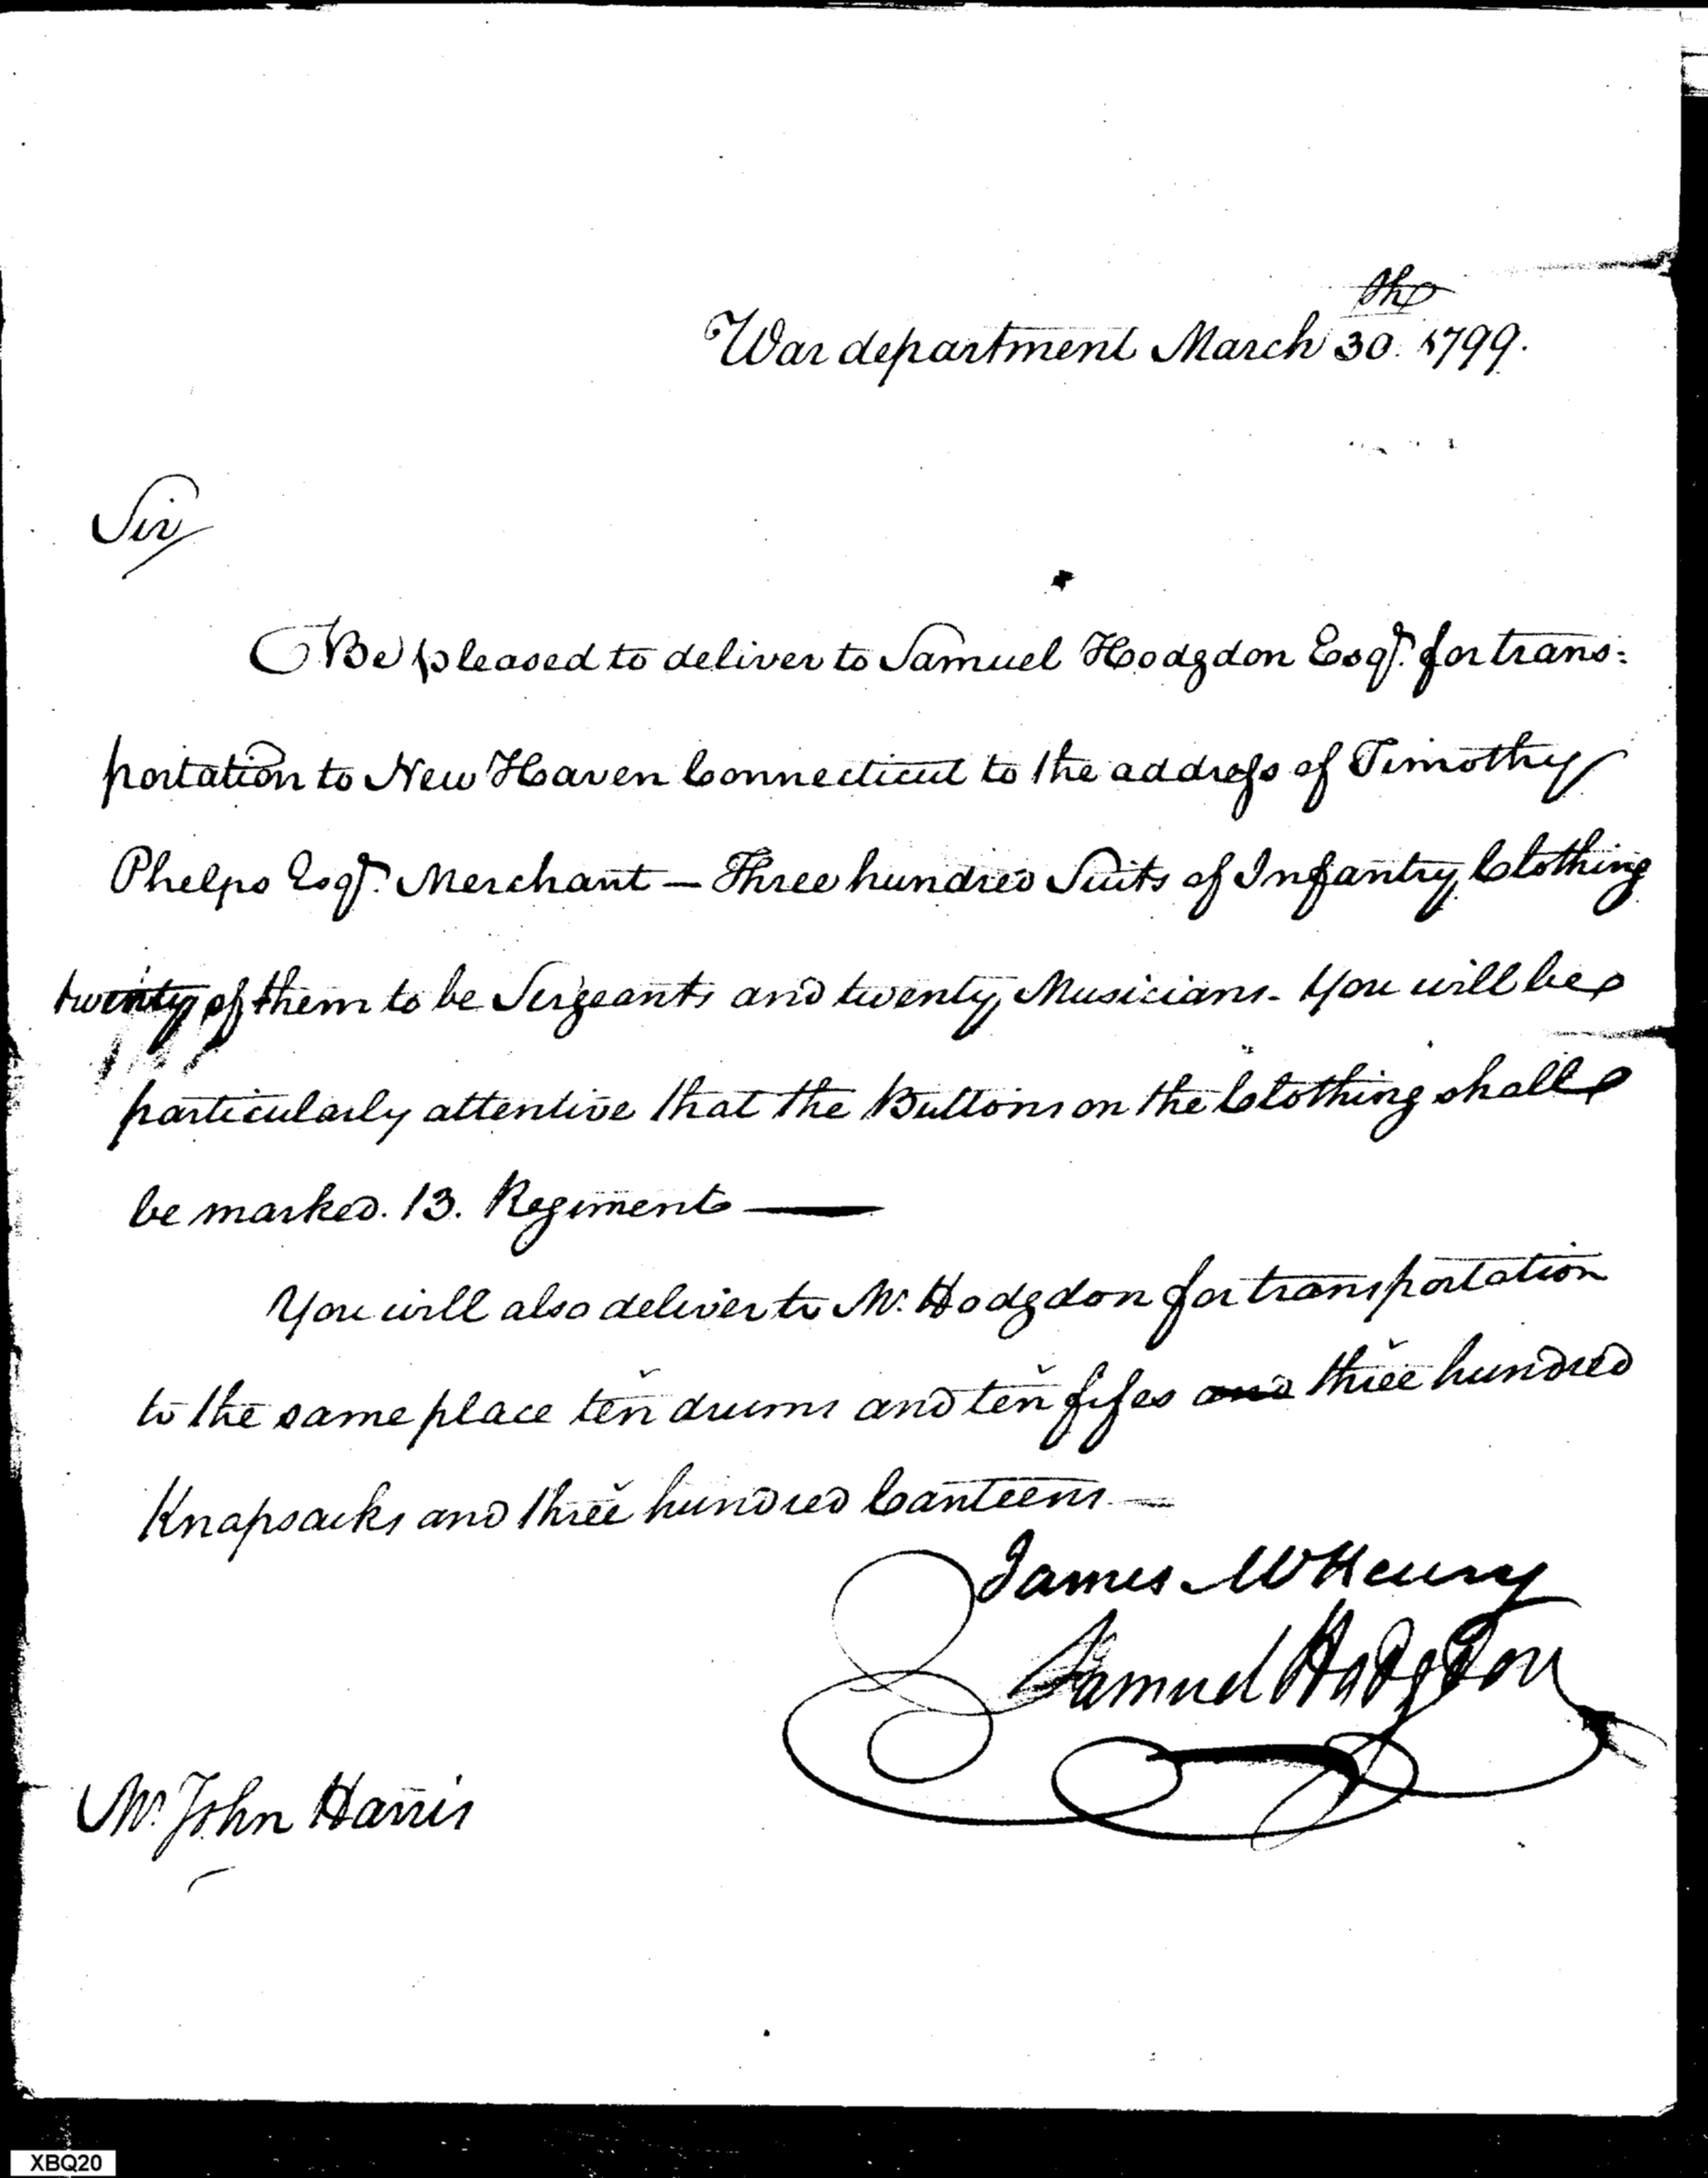 War department March 30th 1799.
Sir
Be pleased to deliver to Samuel Hodgdon Esqr. for trans:
portation to New Haven Connecticut to the address of Timothy
Phelps Esqr. Merchant — Three hundred Suits of Infantry Clothing
twenty of them to be Sergeants and twenty Musicians - You will be
particularly attentive that the Buttons on the Clothing shall
be marked. 13. Regiment —
You will also deliver to Mr. Hodgdon for transportation
to the same place ten drums and ten fifes and three hundred
Knapsacks and three hundred Canteens —
James McHenry
Samuel Hodgdon
Mr. John Harris
XBQ20